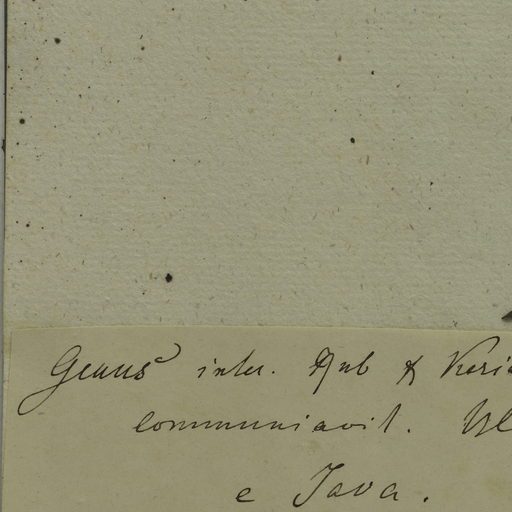 Genus inter. Rub & Keria
communiavit. Bl
e Java.